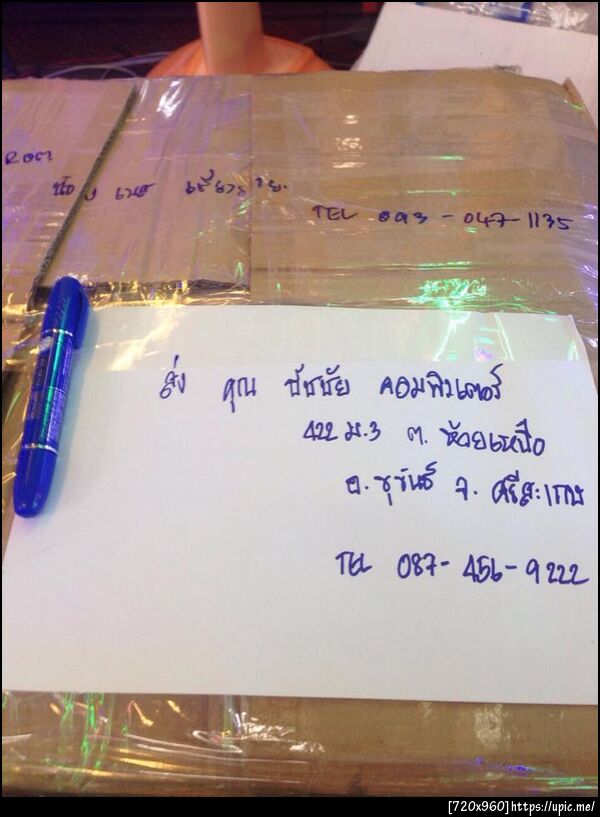 น้อง เนส เชียงราย.
TEL 093-047-1135
ส่ง คุณ ชัชชัย คอมพิวเตอร์
422 ม.3 ต. ห้วยเหนือ
อ. ขุขันธ์ จ. ศรีสะเกษ
TEL 087-456-9222
[720x960]https://upic.me/